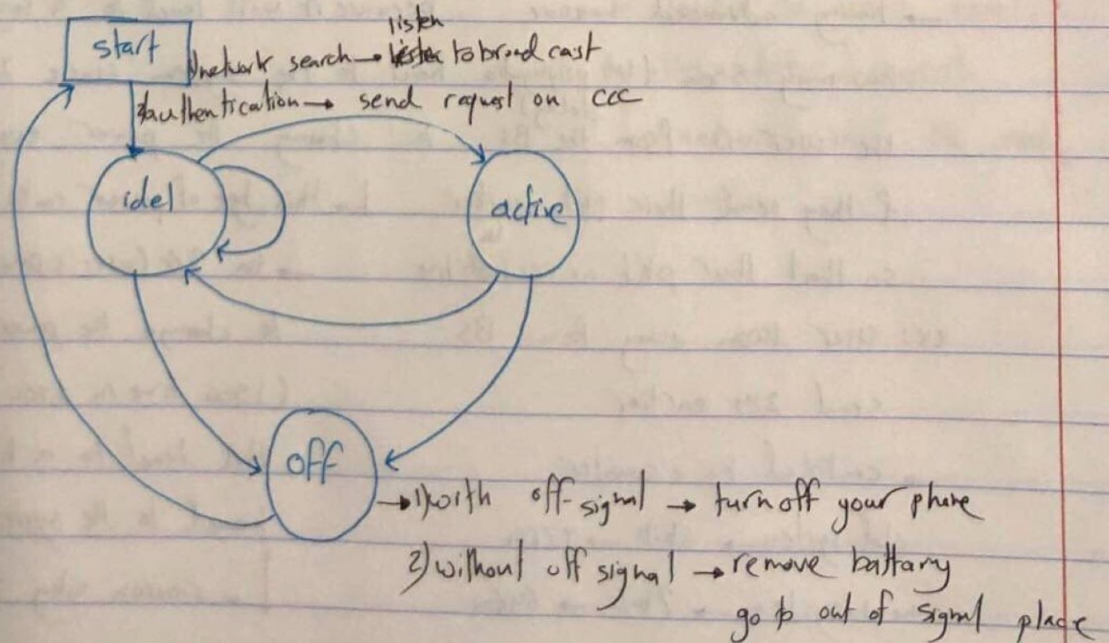 start
listen
1)network search → to broad cast
2)authentication → send request on CCC
idel
active
off
→ 1)with off signal → turn off your phone
2) without off signal → remove battary
go to out of signal place